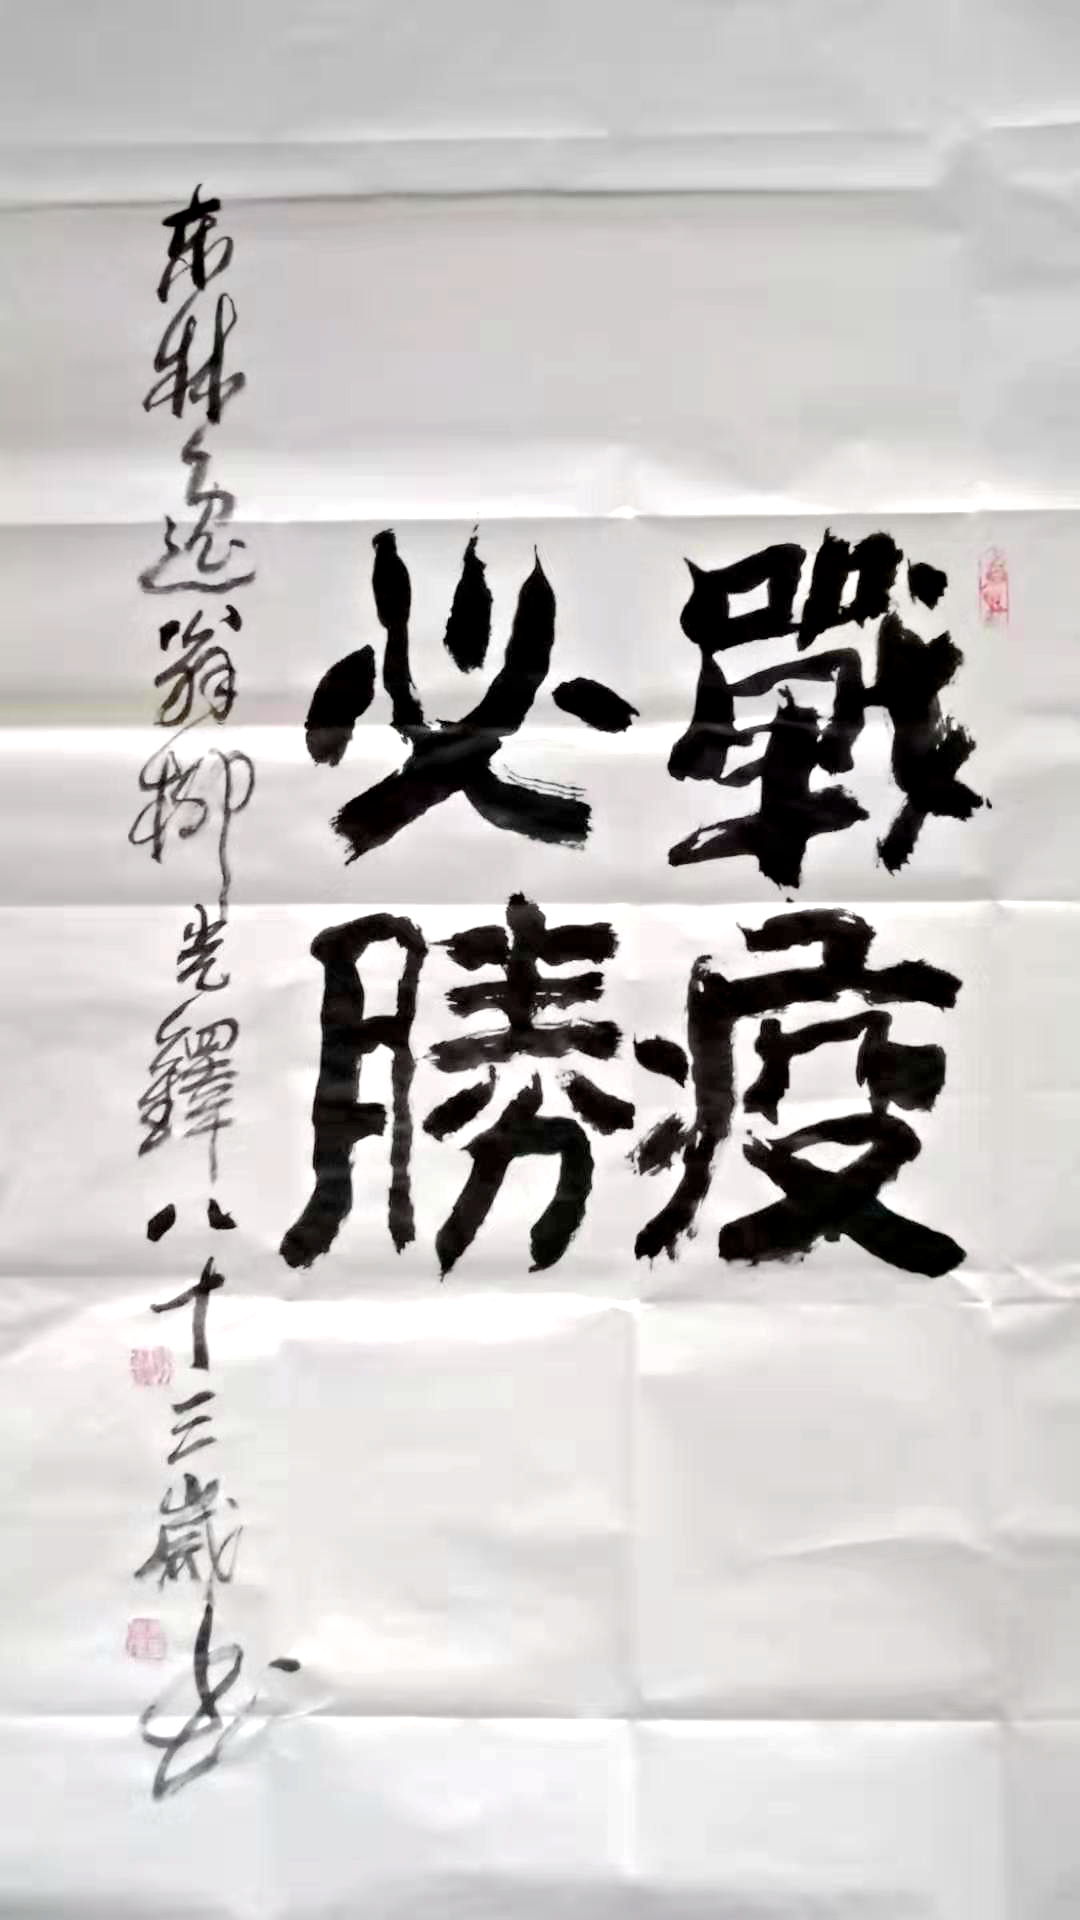 戰疫
必勝
东林逸翁柳光鐸八十三歲书